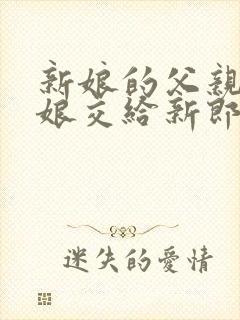 新娘的父親
娘交給新郎
迷失的愛情